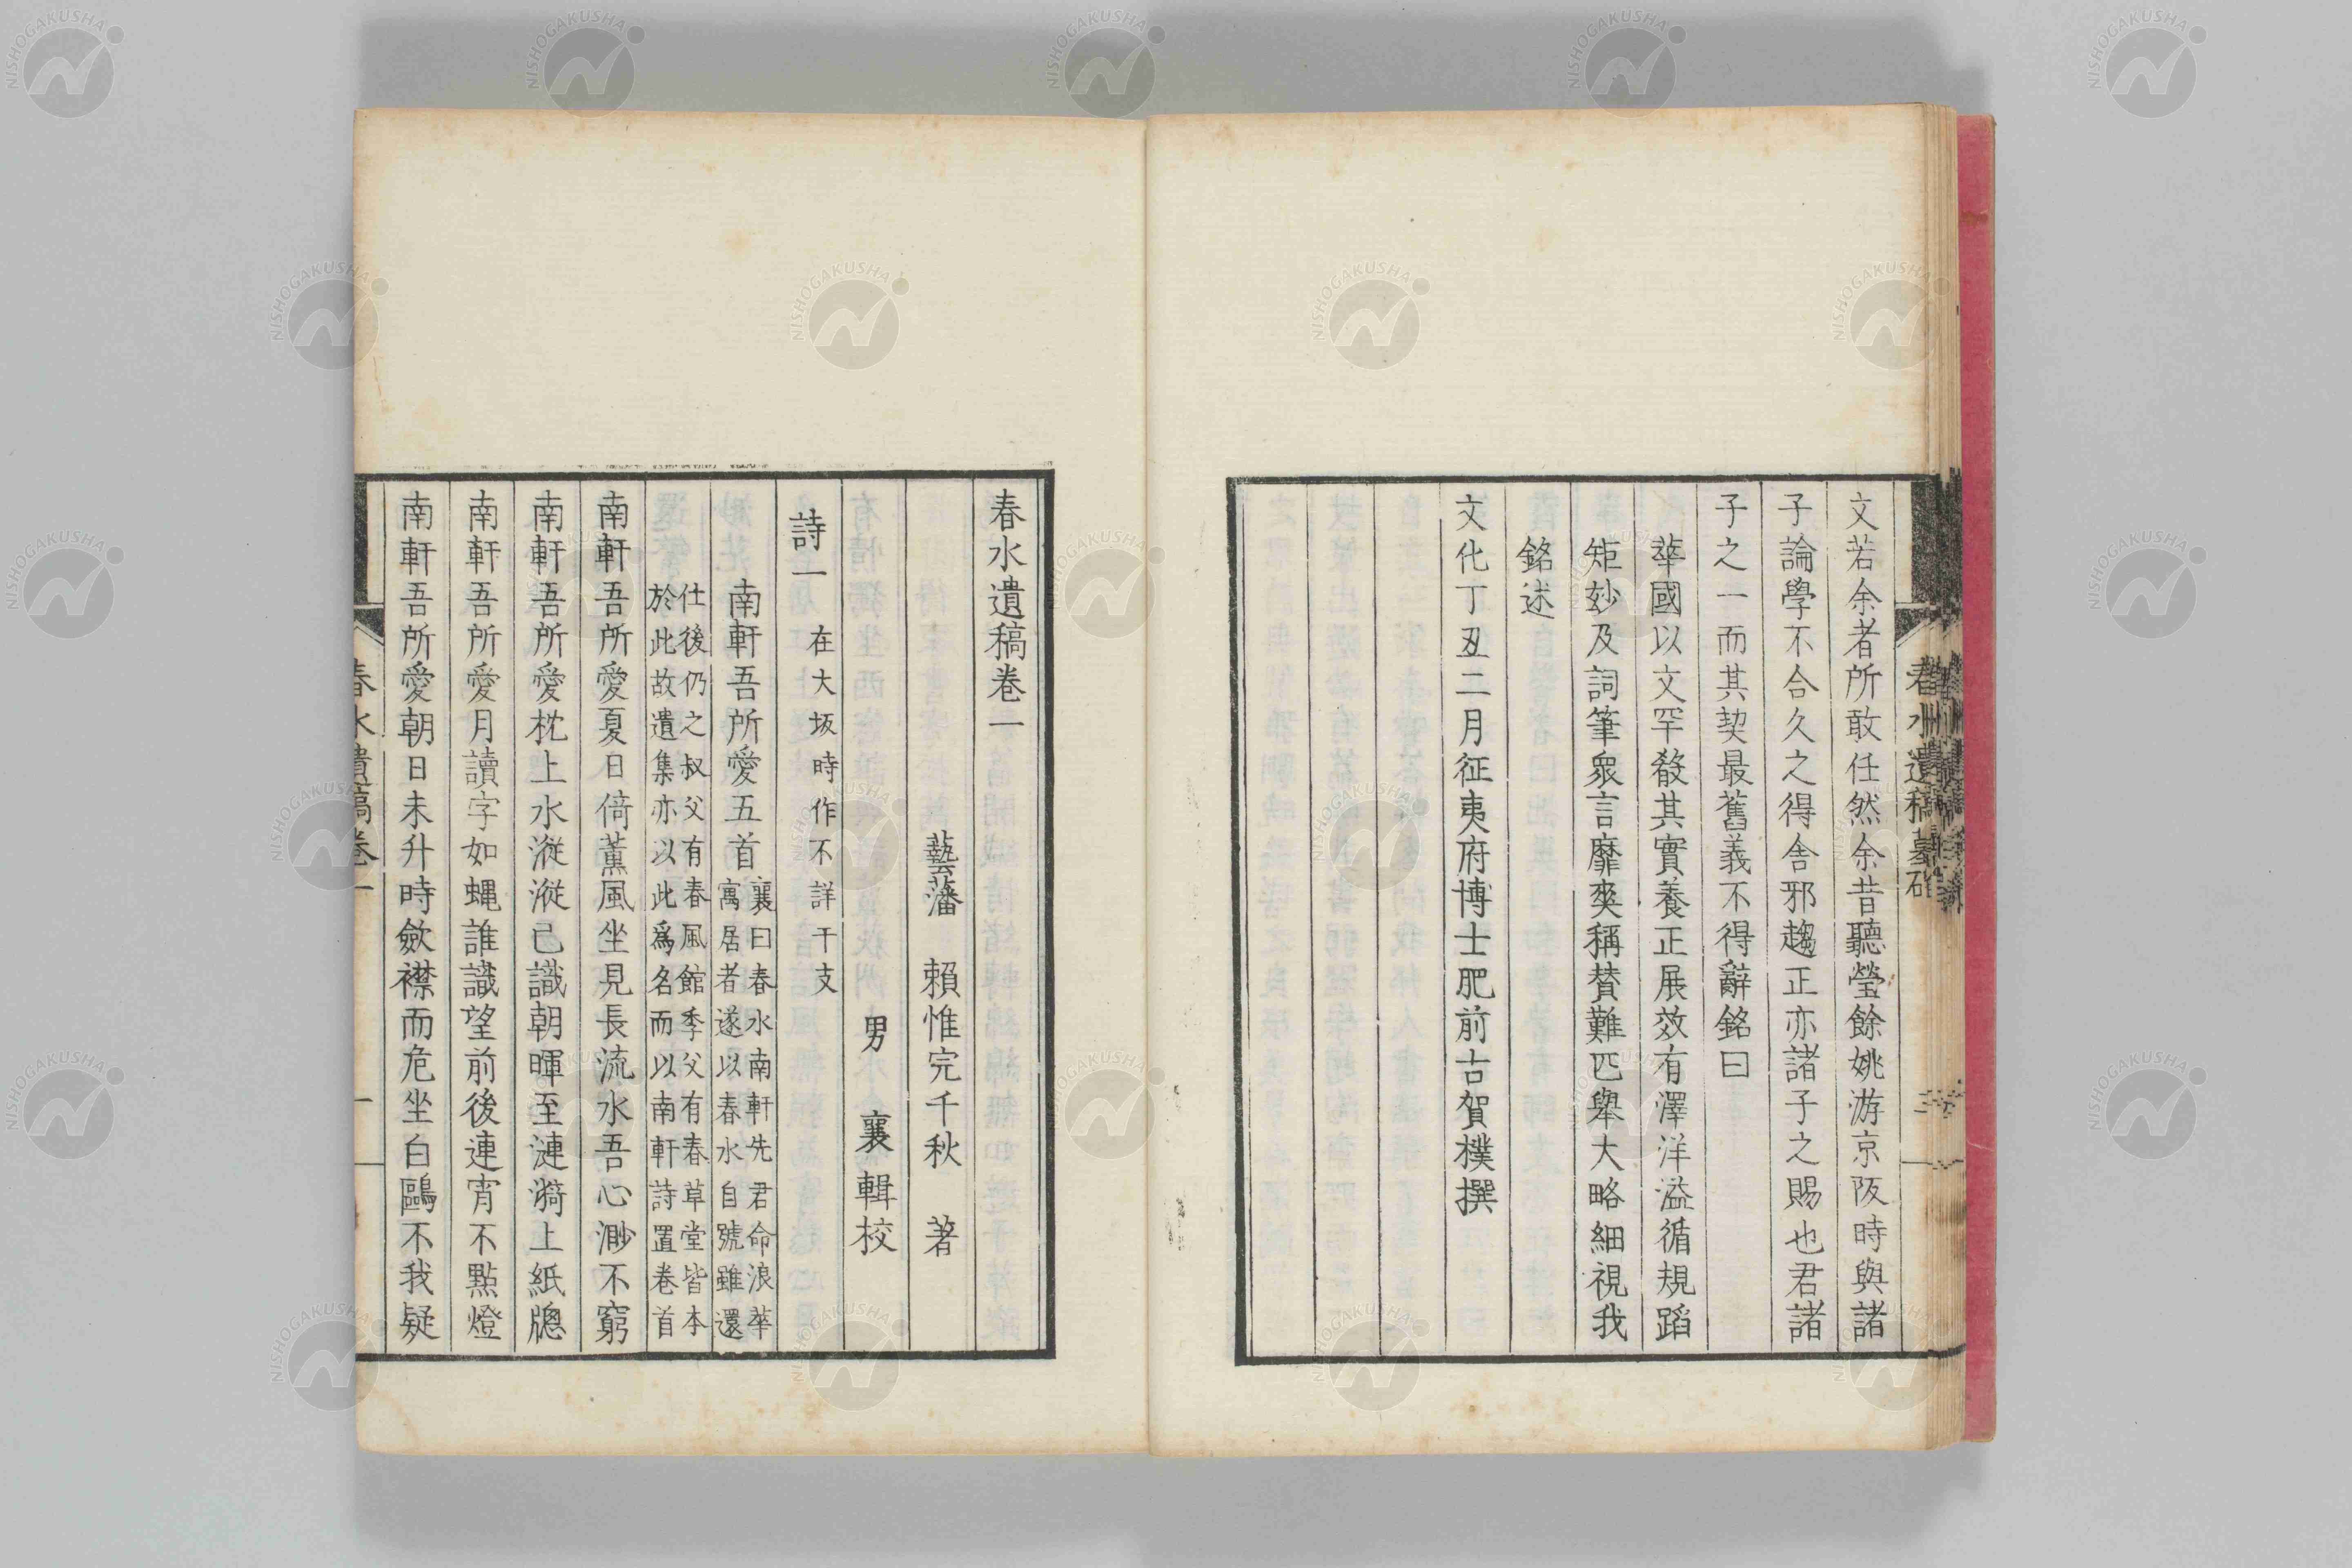 文若余者所敢任然余昔聽瑩餘姚游京阪時與諸
子論學不合久之得舍邪趨正亦諸子之賜也君諸
子之一而其契最舊義不得辭銘曰
華國以文罕敎其實養正展效有澤洋溢循規蹈
矩妙及詞筆衆言靡爽稱賛難匹舉大略細視我
銘述
文化丁丑二月征夷府博士肥前古賀樸撰
春水遺稿卷一
藝藩 賴惟完千秋 著
男 襄 輯校
詩一 在大坂時作不詳干支
南軒吾所愛五首 襄曰春水南軒先君命浪華
寓居者遂以春水自號雖還
仕後仍之叔父有春風館季父有春草堂皆本
於此故遺集亦以此爲名而以南軒詩置卷首
南軒吾所愛夏日倚薰風坐見長流水吾心渺不窮
南軒吾所愛枕上水漎漎已識朝暉至漣漪上紙牕
南軒吾所愛月讀字如蝿誰識望前後連宵不點燈
南軒吾所愛朝日未升時斂襟而危坐白鷗不我疑
春水遺稿卷一
一
NISHOGAKUSHA